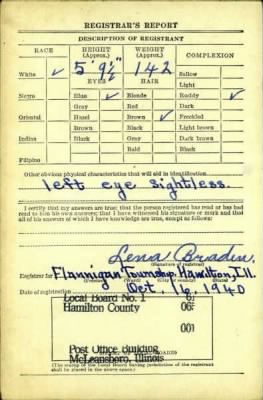 REGISTRAR'S REPORT
DESCRIPTION OF REGISTRANT
RACE HEIGHT (Approx.) WEIGHT (Approx.) COMPLEXION
5' 9½" 142
White ✓ Sallow
EYES HAIR Light
Negro Blue ✓ Blonde Ruddy ✓
Gray Red Dark
Oriental Hazel Brown ✓ Freckled
Brown Black Light brown
Indian Black Gray Dark brown
Bald Black
Filipino
Other obvious physical characteristics that will aid in identification
left eye sightless.
I certify that my answers are true; that the person registered has read or has had
read to him his own answers; that I have witnessed his signature or mark and that
all of his answers of which I have knowledge are true, except as follows:
Lena Braden
(Signature of registrar)
Registrar for Flannigan Township Hamilton, Ill.
Date of registration Oct. 16, 1940
Local Board No. 1
Hamilton County
001
Post Office Building
McLeansboro, Illinois
(The stamp of the Local Board having jurisdiction of the registrant
shall be placed in the above space.)